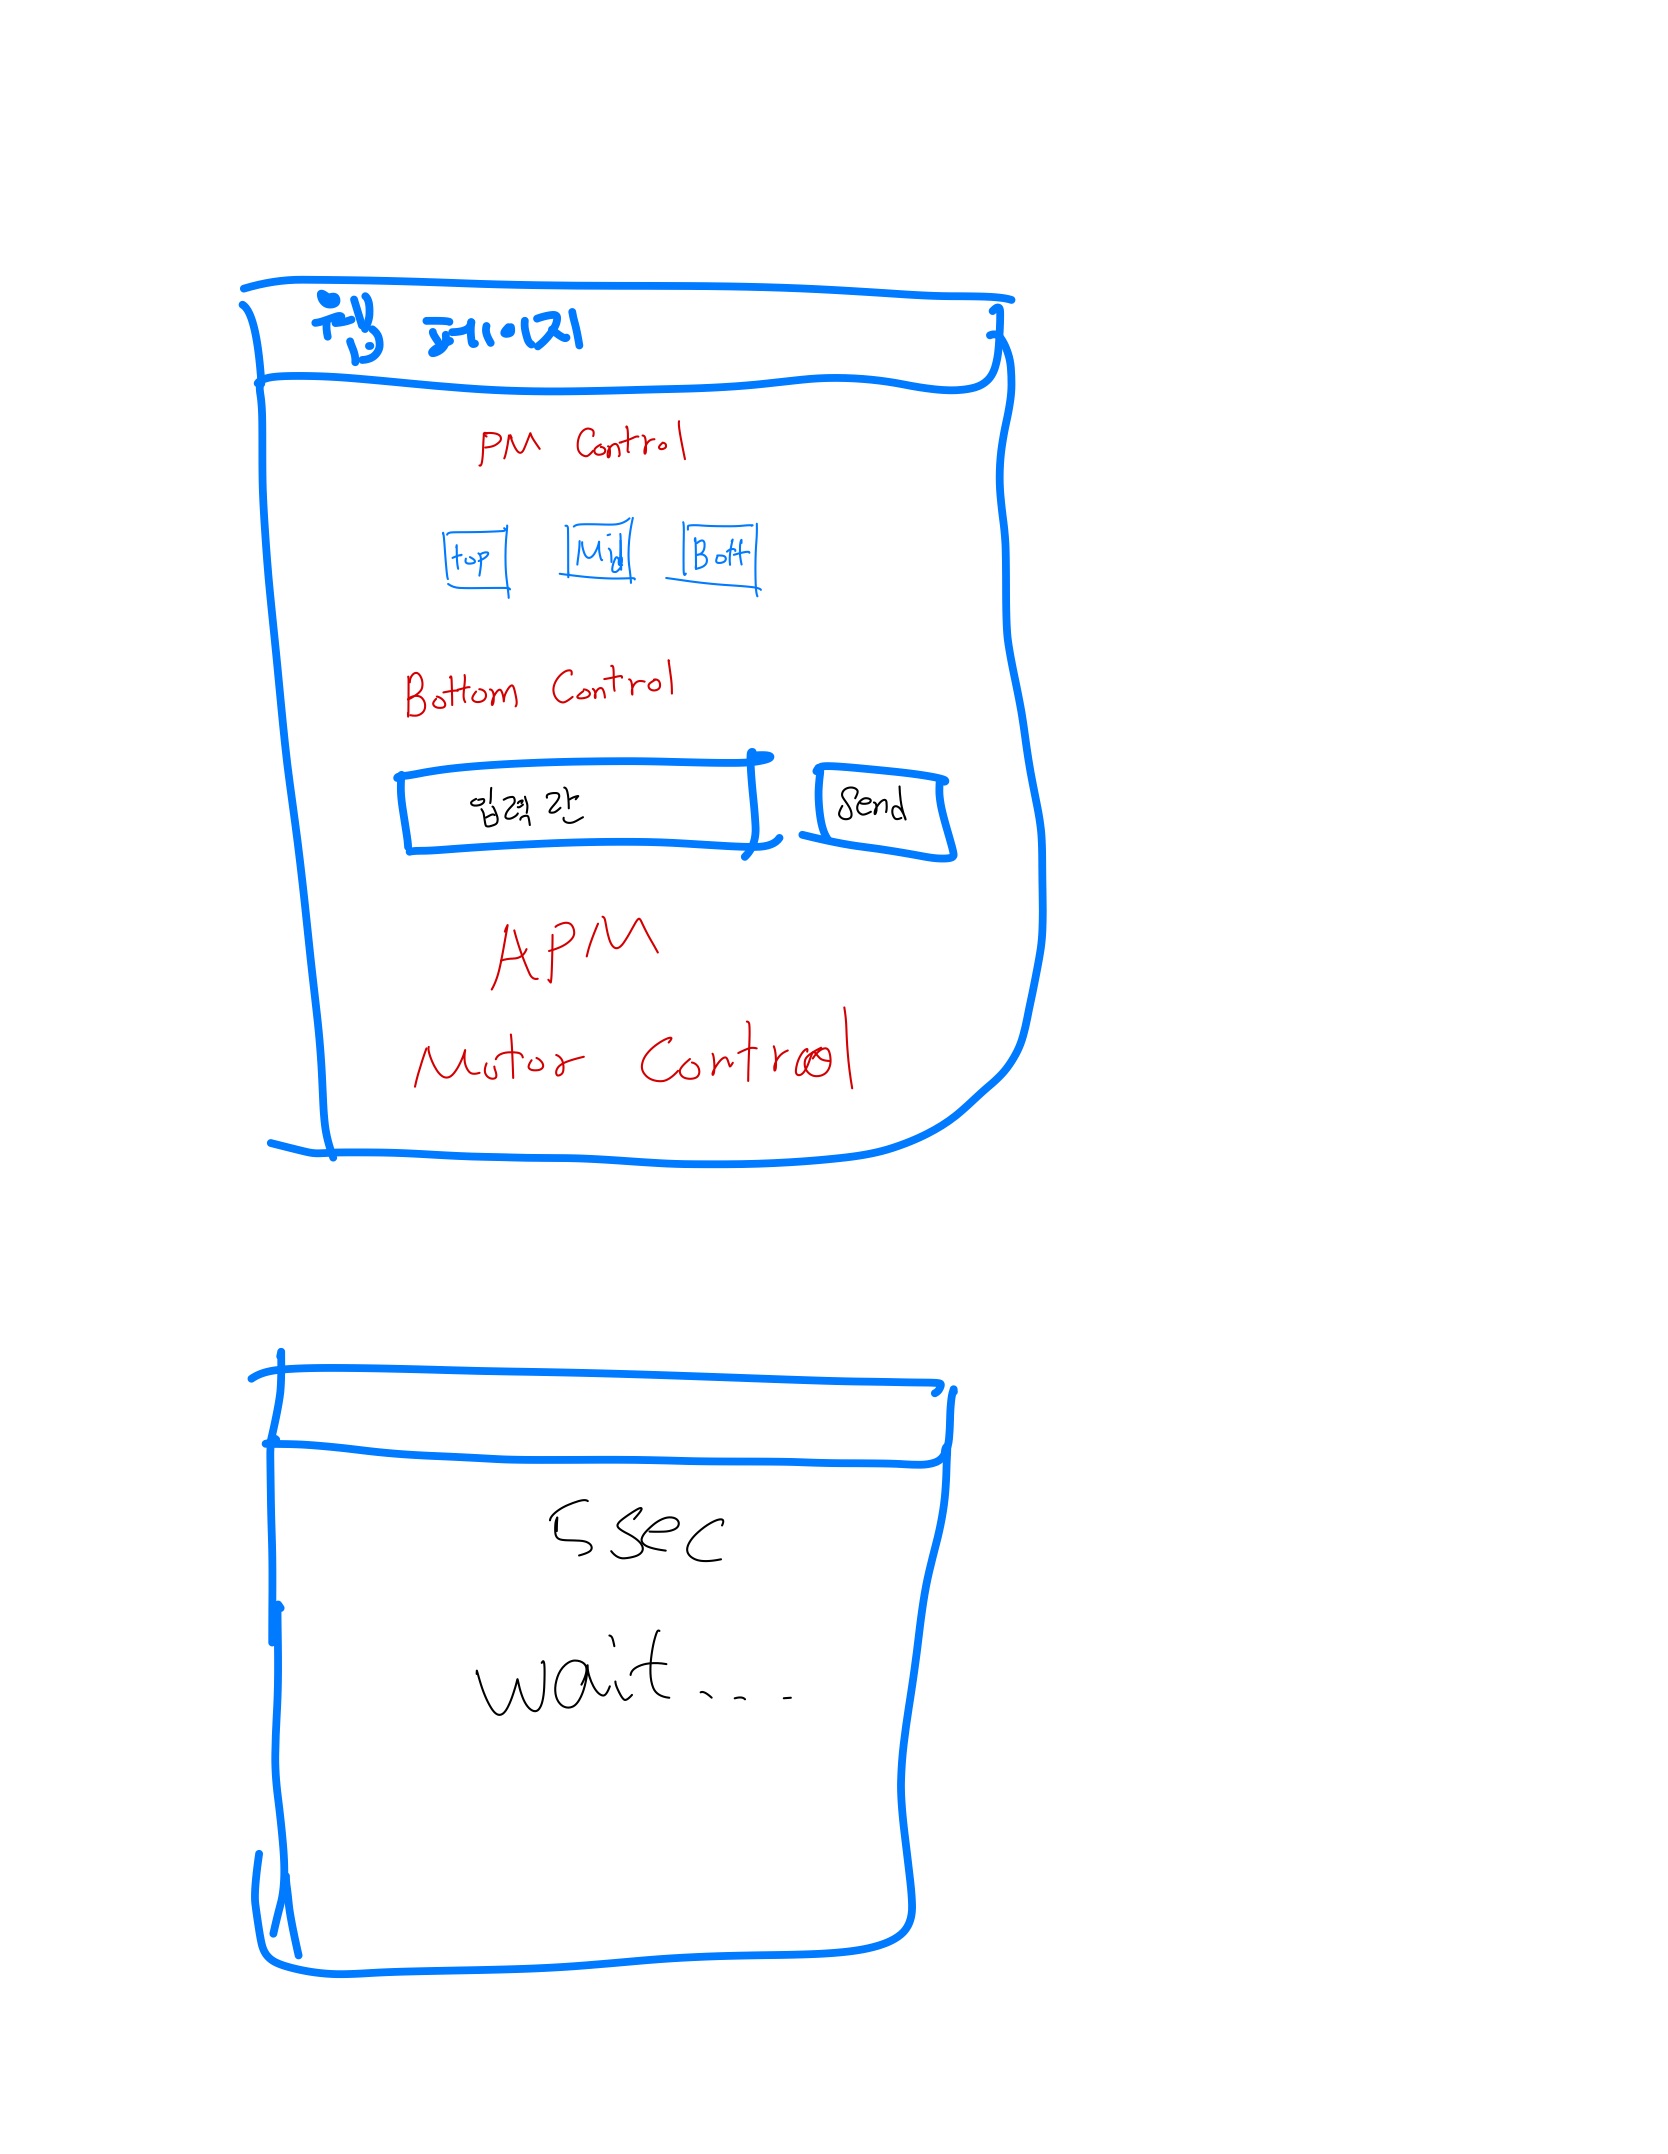 웹 페이지
PM Control
top Mid Bott
Bottom Control
입력란 Send
APM
Motor Control
5 sec
wait...